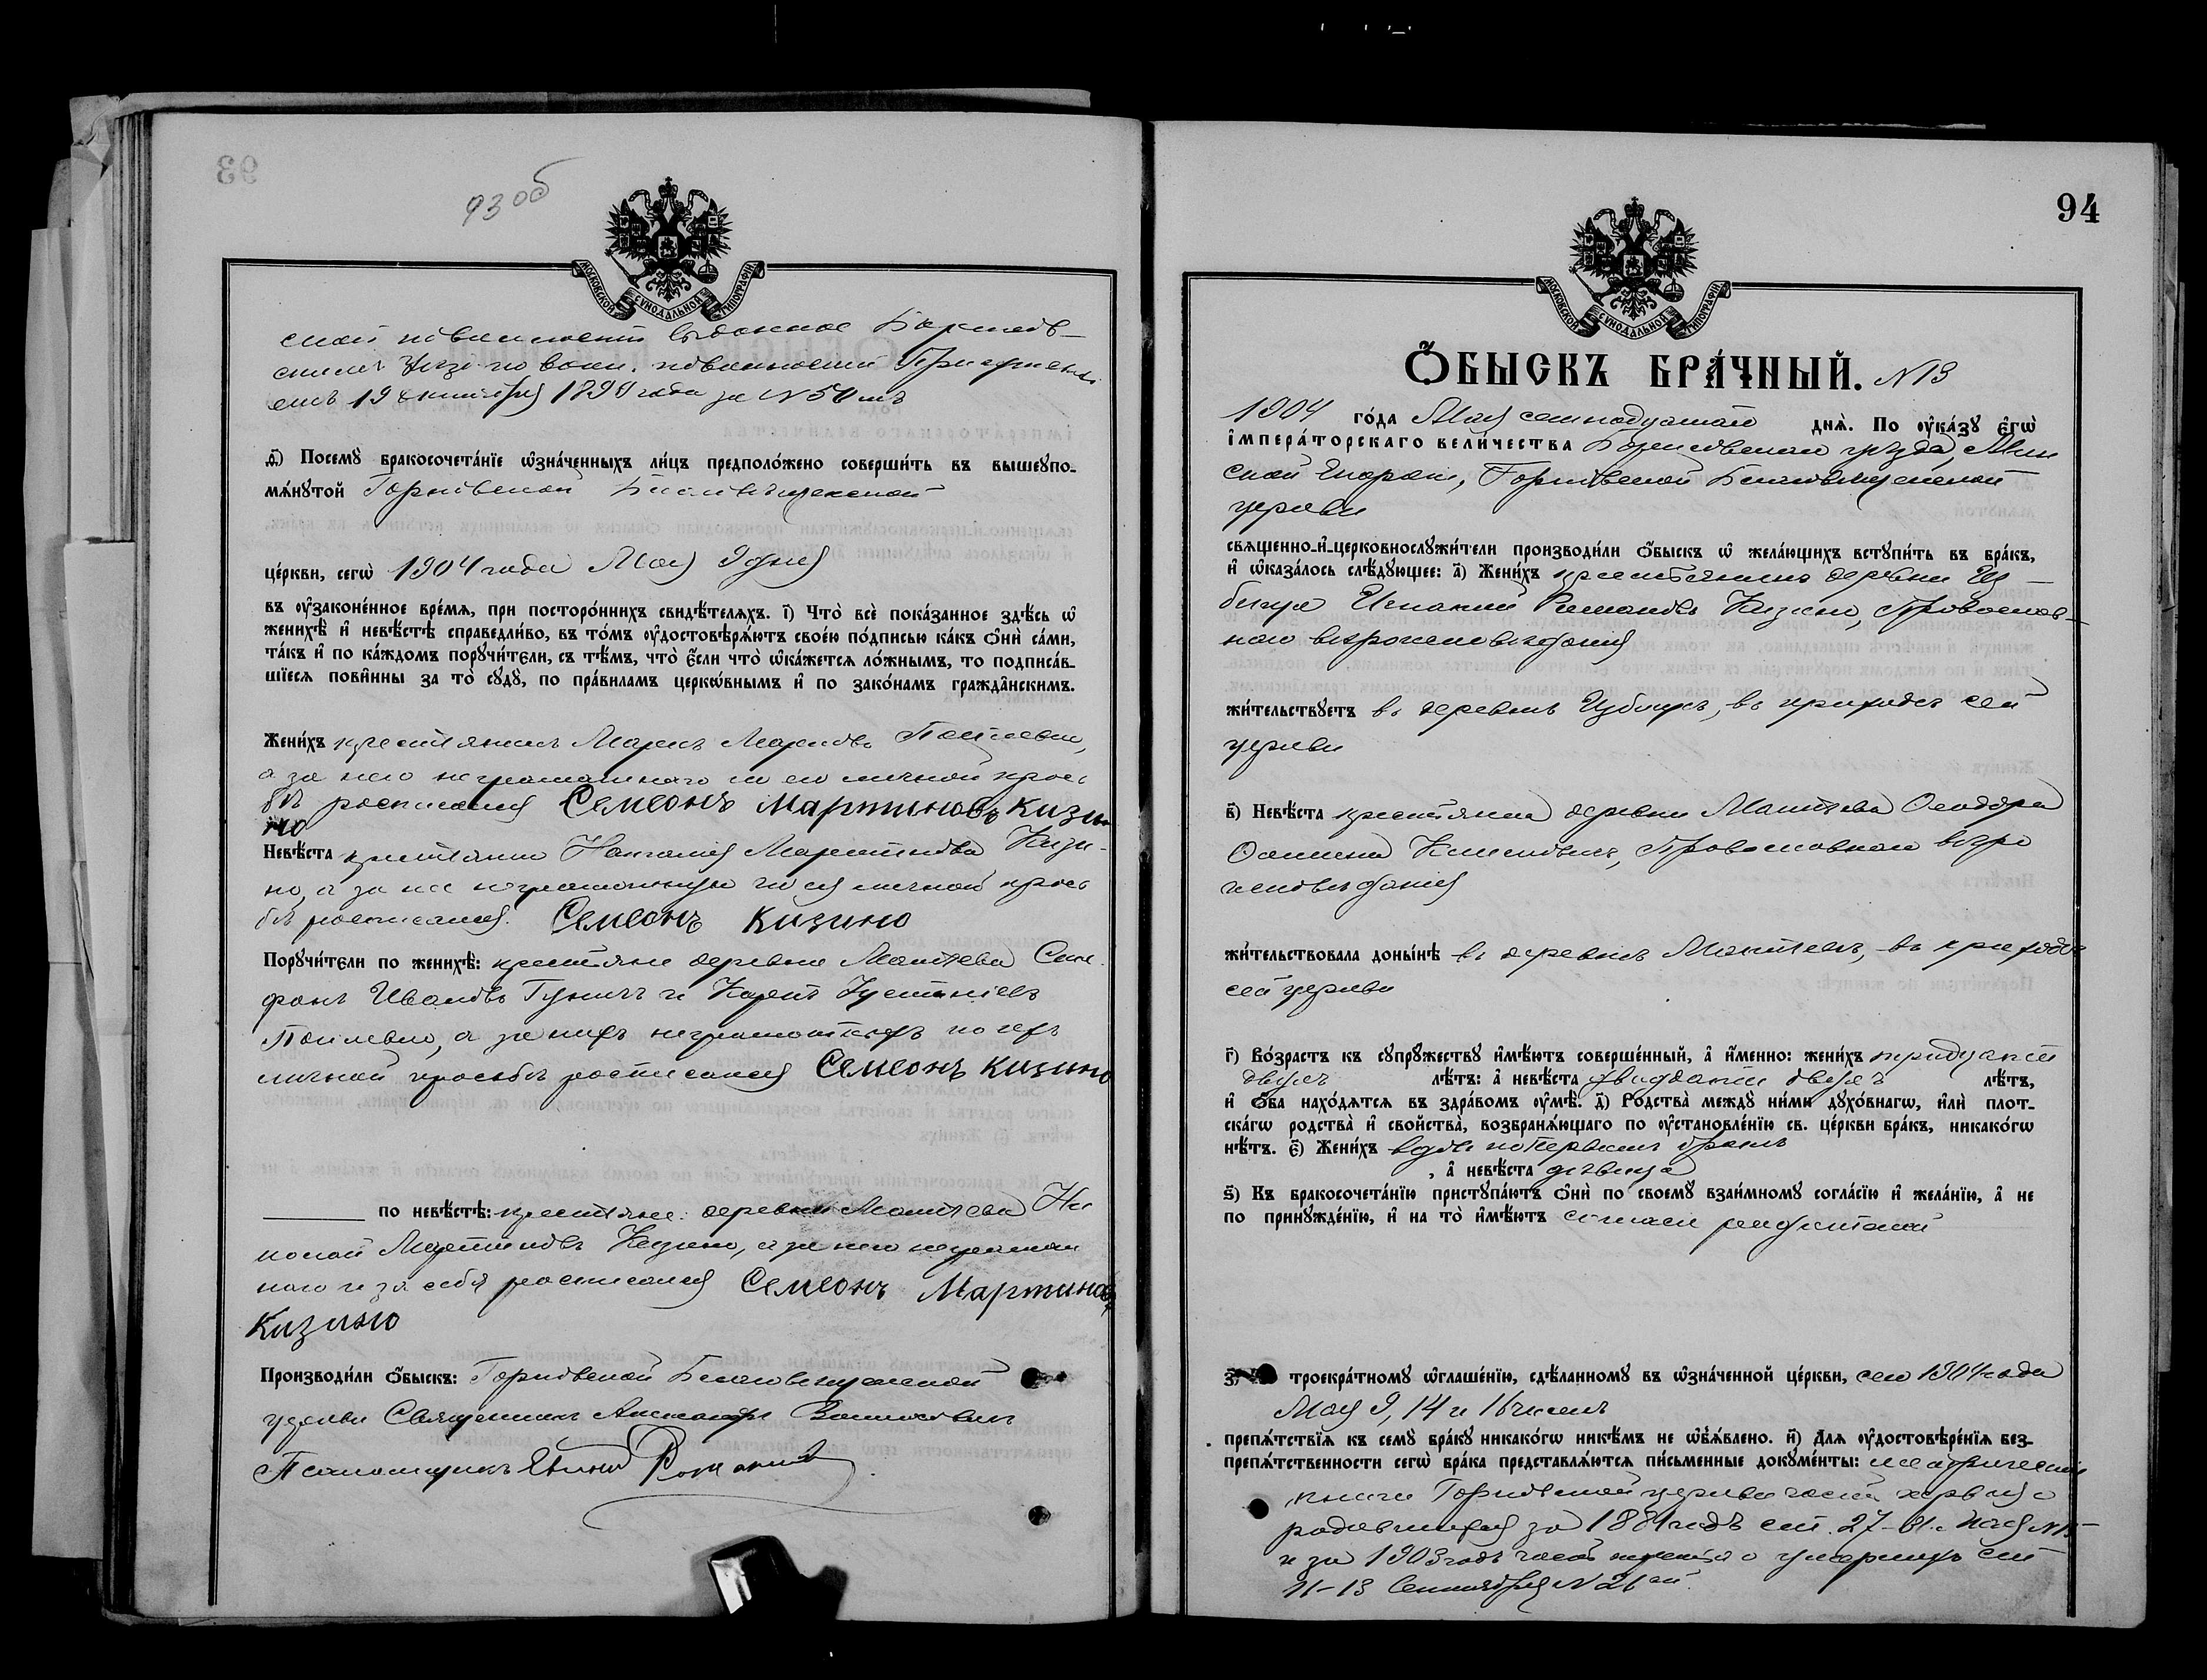 93
93 об
МОСКОВСКОЙ СУНОДАЛЬНОЙ ТИПОГРАФІИ
ской повинности выданное Борисов-
скимъ Уѣзд. по воин. повинности Присутстві-
емъ 19 октября 1890 года за №50мъ
ѳ҃) Посемꙋ бракосочета́нїе ѡ҆зна́ченныхъ ли́цъ предполо́жено соверши́ть въ вышеꙋпо-
мѧ́нꙋтой Благовѣщенской
це́ркви, сегѡ̀ 1904 года Мая 9 дня
въ ᲂу҆законе́нное вре́мѧ, при посторо́ннихъ свидѣ́телѧхъ. і҃) Что̀ всѐ пока́занное здѣ́сь ѡ҆
женихѣ̀ и҆ невѣ́стѣ справедли́во, въ то́мъ ᲂу҆достовѣрѧ́ютъ свое́ю по́дписью ка́къ ѻ҆нѝ са́ми,
та́къ и҆ по ка́ждомъ порꙋчи́тели, съ тѣ́мъ, что̀ є҆́сли что̀ ѡ҆ка́жетсѧ ло́жнымъ, то подписа́в-
шїесѧ пови́нны за то̀ сꙋдꙋ̀, по пра́виламъ церкѡ́внымъ и҆ по зако́намъ гражда́нскимъ.
Жени́хъ крестьянинъ Маркъ Марковъ
а за него неграмотнаго по его личной прось
бѣ росписался Семеонъ Мартиновъ Кизи
но
Невѣ́ста крестьянка Наталія Мартинова Кизи-
но, а за нее неграмотную по ея личной прось
бѣ росписался. Семеонъ Кизино
Порꙋчи́тели по женихѣ̀: крестьяне деревни Мстижева Сте-
фанъ Ивановъ и Карпъ
а за нихъ неграмотныхъ по ихъ
личной просьбѣ росписался Семеонъ Кизино
по невѣ́стѣ: крестьяне деревни Мстижева Ни
колай Мартиновъ Кизино, а за него неграмот
наго и за себя росписался Семеонъ Мартиновъ
Кизино
Производи́ли ѻ҆́быскъ: Благовѣщенской
церкви Священникъ Александръ
Псаломщикъ
94
МОСКОВСКОЙ СУНОДАЛЬНОЙ ТИПОГРАФІИ
Ѻ҆́БЫСКЪ БРА́ЧНЫЙ. №13
1904 го́да Мая семнадцатаго днѧ̀. По ᲂу҆ка́зꙋ є҆гѡ̀
і҆мпера́торскаго вели́чества Борисовскаго уѣзда, Мин
ской Епархіи, Благовѣщенской
церкви
свѧщенно-и҆-церковнослꙋжи́тели производи́ли ѻ҆́быскъ ѡ҆ жела́ющихъ встꙋпи́ть въ бра́къ,
и҆ ѡ҆каза́лось слѣ́дꙋющее: а҃) Жени́хъ крестьянинъ деревни Из-
бища Игнатій Романовъ Кизино, Православ-
наго вѣроисповѣданія
жи́тельствꙋетъ въ деревнѣ Избищѣ, въ приходѣ сей
церкви
в҃) Невѣ́ста крестьянка деревни Мстижева Ѳеодора
Православнаго вѣро
исповѣданія
жи́тельствовала доны́нѣ въ деревнѣ Мстижевѣ, въ приходѣ
сей церкви
г҃) Во́зрастъ къ сꙋпрꙋ́жествꙋ и҆мѣ́ютъ соверше́нный, а҆ и҆́менно: жени́хъ тридцати
двухъ лѣ́тъ: а҆ невѣ́ста двадцати двухъ лѣ́тъ,
и҆ ѻ҆́ба нахо́дѧтсѧ въ здра́вомъ ᲂу҆мѣ̀. д҃) Родства̀ междꙋ ни́ми дꙋхо́внагѡ, и҆лѝ плот-
ска́гѡ родства̀ и҆ сво́йства, возбранѧ́ющаго по ᲂу҆становле́нїю св. це́ркви бра́къ, никако́гѡ
нѣ́тъ. є҃) Жени́хъ вдовъ по первомъ бракѣ
, а҆ невѣ́ста дѣвица
ѕ҃) Къ бракосочета́нїю пристꙋпа́ютъ ѻ҆нѝ по своемꙋ̀ взаи́мномꙋ согла́сїю и҆ жела́нїю, а҆ не
по принꙋжде́нїю, и҆ на то̀ и҆мѣ́ютъ согласіе родителей
троекра́тномꙋ ѡ҆глаше́нїю, сдѣ́ланномꙋ въ ѡ҆зна́ченной це́ркви, сего 1904 года
Мая 9, 14 и 16 чиселъ
препѧ́тствїѧ къ семꙋ̀ бра́кꙋ никако́гѡ никѣ́мъ не ѡ҆б̾ѧ́влено. и҃) Длѧ ᲂу҆достовѣре́нїѧ без-
препѧ́тственности сегѡ̀ бра́ка представлѧ́ютсѧ пи́сьменные докꙋме́нты: метрическія
книги церкви часть первая о
родившихся за 1881 годъ ст. 27
и за 1903 годъ часть третья о умершихъ ст
11-13 Сентября №21ый.